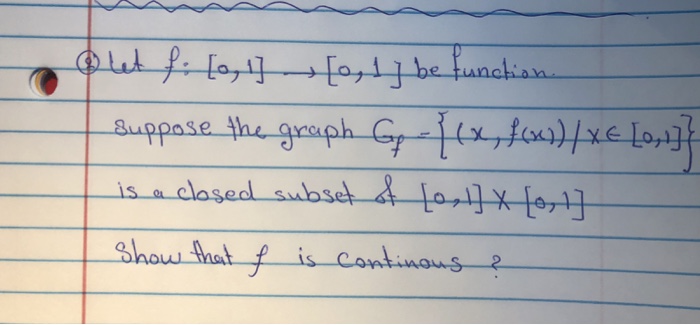 ② Let f: [0,1] → [0,1] be function.
Suppose the graph G_f = {(x, f(x)) / x ∈ [0,1]}
is a closed subset of [0,1] X [0,1]
Show that f is continous ?